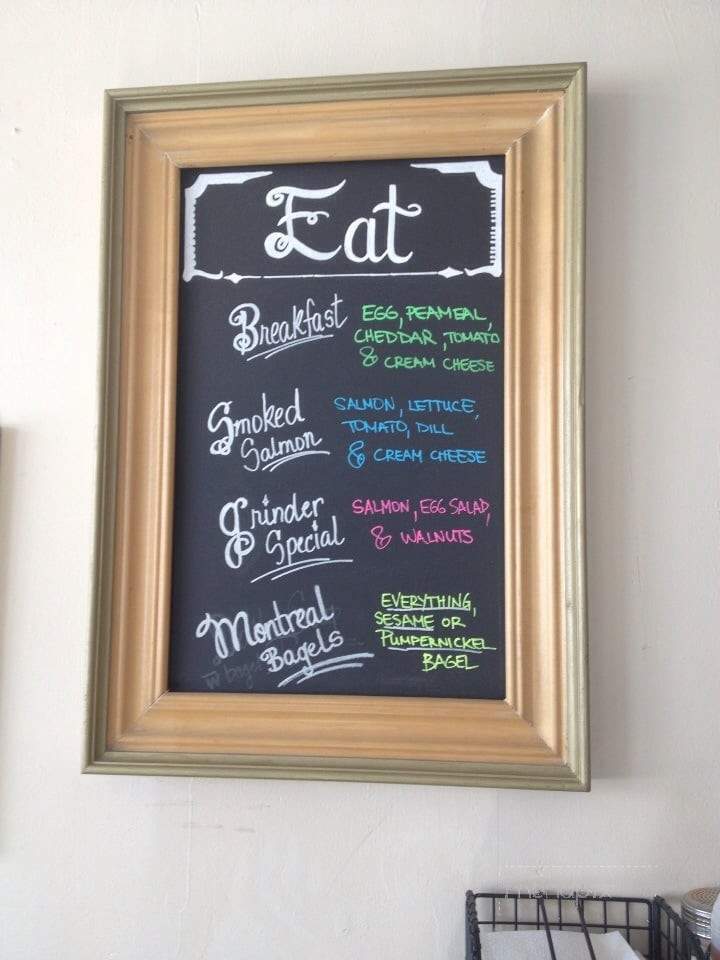 Eat
Breakfast
EGG, PEAMEAL,
CHEDDAR, TOMATO
& CREAM CHEESE
Smoked
Salmon
SALMON, LETTUCE,
TOMATO, DILL
& CREAM CHEESE
Grinder
Special
SALMON, EGG SALAD,
& WALNUTS
Montreal
Bagels
EVERYTHING,
SESAME OR
PUMPERNICKEL
BAGEL
menupix